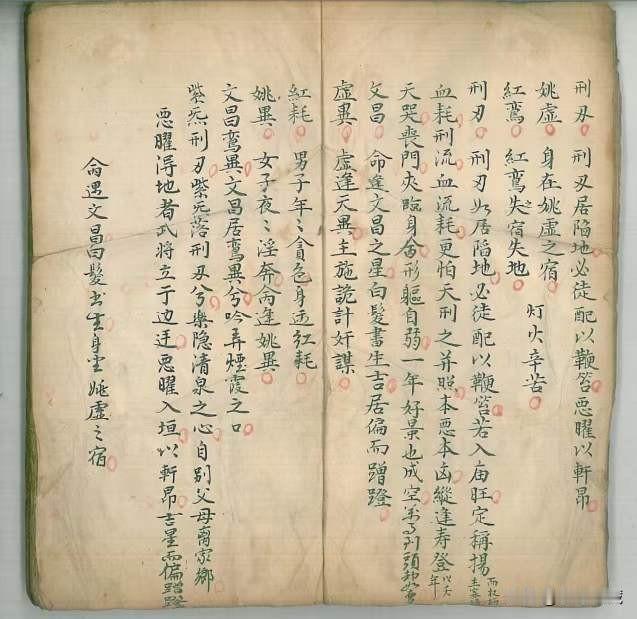 刑刃　刑刃居陷地必徒配以鞭笞惡曜以軒昂
姚虛　身在姚虛之宿　灯火辛苦
紅鸞　紅鸞失之宿失地
刑刃　刑刃如居陷地必徒配以鞭笞若入庙旺定称揚
血耗刑　流血流耗更怕天刑之并照本惡本凶縱逢寿登
天哭喪門夾臨身命形軀自弱一年好景也成空
文昌　命逢文昌之星白髮書生吉居偏而蹭蹬
虛異　虛逢天異主施詭計奸謀
紅耗　男子年〻貪色身逢紅耗
姚異　女子夜〻淫奔命逢姚異
文昌鸞異　文昌居鸞異兮吟弄煙霞之口
紫炁刑刃　紫炁落刑刃兮樂隐清泉之心自别父母离家鄉
惡曜得地者武将立于边廷惡曜入垣以軒昂吉星而偏蹭蹬
命遇文昌髮書生身坐姚虛之宿